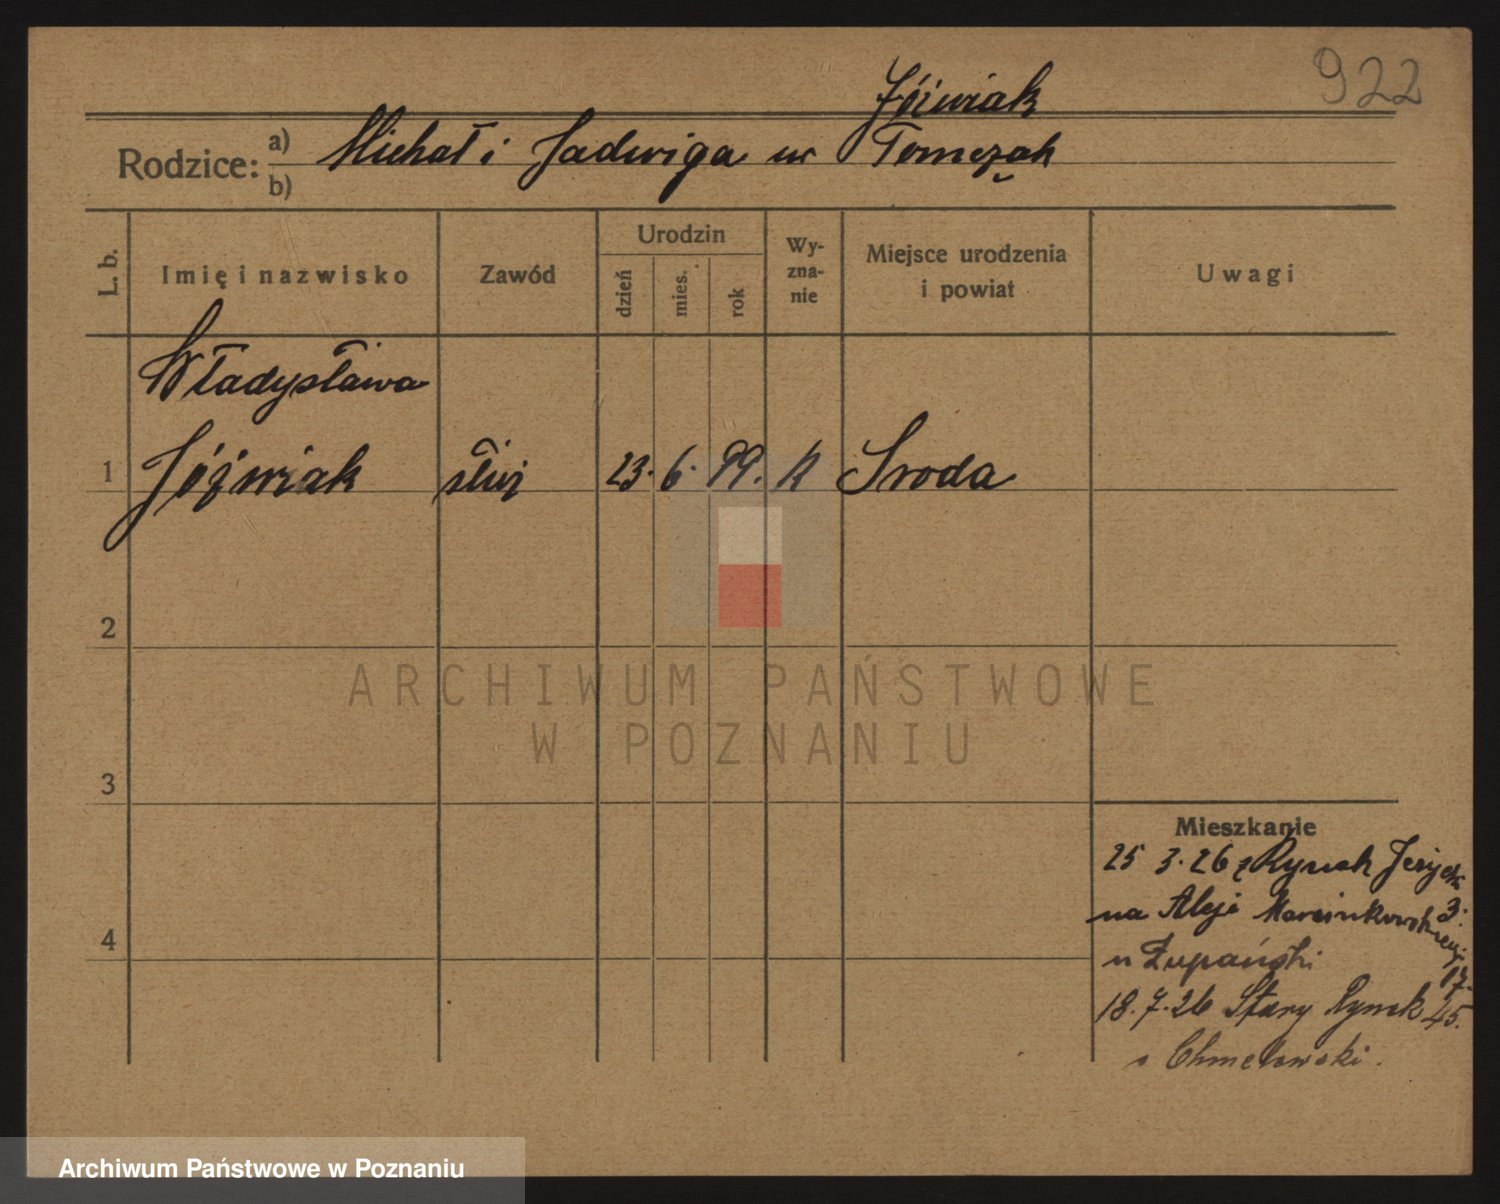 922
Jóźwiak
Rodzice: a) Michał i Jadwiga ur Tomczak
b)
L. b. Imię i nazwisko Zawód Urodzin dzień mies. rok Wyznanie Miejsce urodzenia i powiat Uwagi
Władysława
1 Jóźwiak służ 23. 6. 99. K Środa
2
ARCHIWUM PAŃSTWOWE
W POZNANIU
3
Mieszkanie
25 3. 26 z Rynek Jeżyck 3.
4
na Aleje Marcinkowskiego 17.
u Żupański
18. 7. 26 Stary Rynek 45.
Chmelewski.
Archiwum Państwowe w Poznaniu